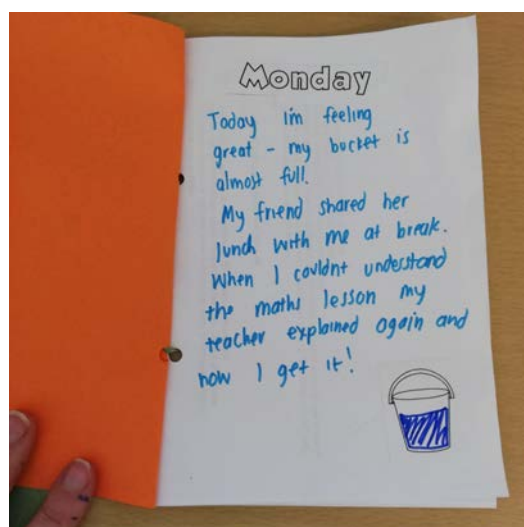 Monday
Today im feeling
great - my bucket is
almost full.
My friend shared her
lunch with me at break.
When I couldnt understand
the maths lesson my
teacher explained again and
now I get it!